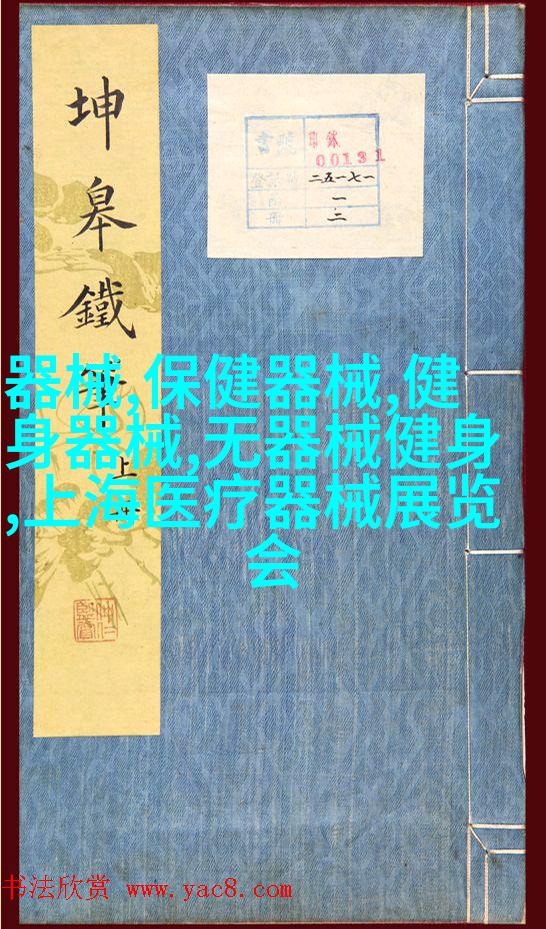 坤皋鐵
上
書號
印 鉥
00131
二五一七一
一
二
器械,保健器械,健
身器械,无器械健身
,上海医疗器械展览
会
书法欣赏 www.yac8.com